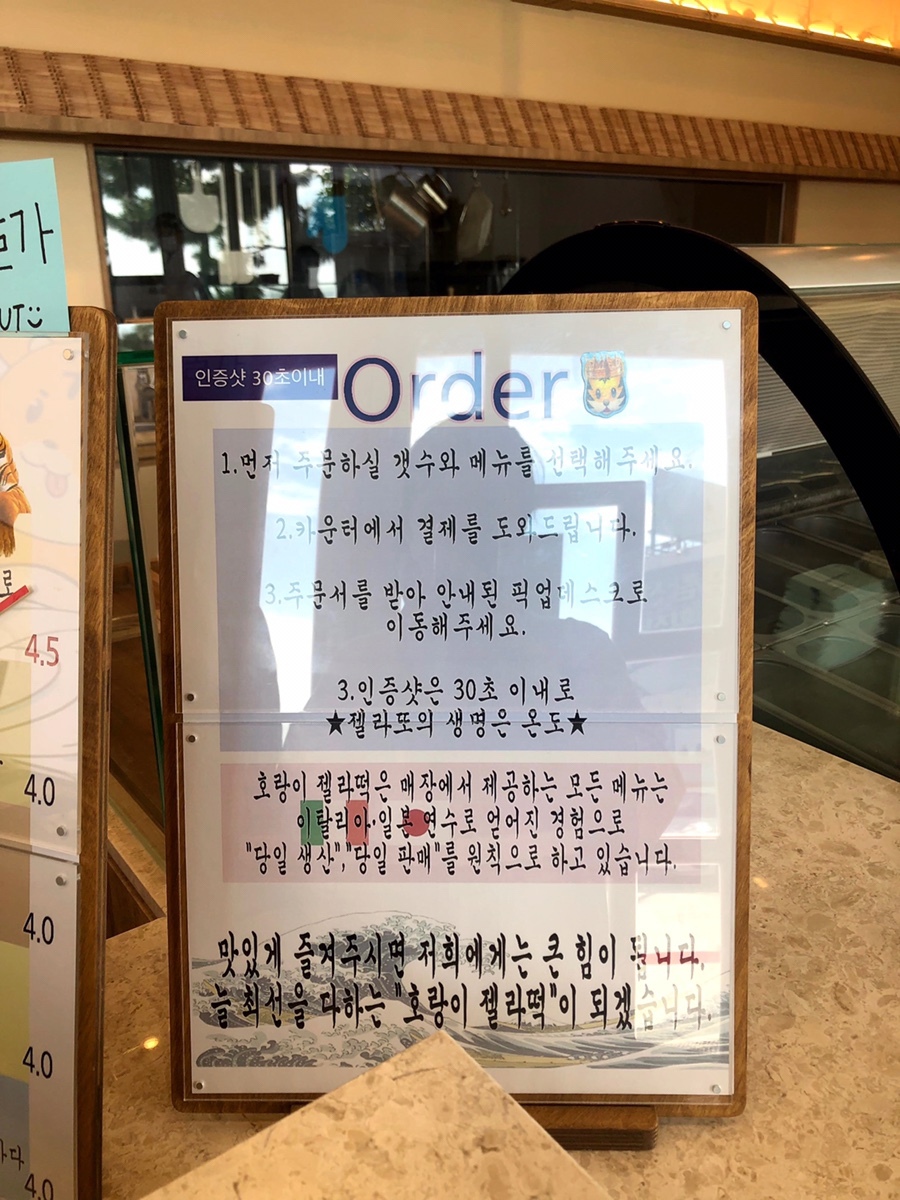 인증샷 30초이내
Order
1.먼저 주문하실 갯수와 메뉴를 선택해주세요.
2.카운터에서 결제를 도와드립니다.
3.주문서를 받아 안내된 픽업데스크로
이동해주세요.
3.인증샷은 30초 이내로
★젤라또의 생명은 온도★
호랑이 젤라떡은 매장에서 제공하는 모든 메뉴는
이탈리아·일본 연수로 얻어진 경험으로
"당일 생산","당일 판매"를 원칙으로 하고 있습니다.
맛있게 즐겨주시면 저희에게는 큰 힘이 됩니다.
늘 최선을 다하는 "호랑이 젤라떡"이 되겠습니다.
가
UT
로
4.5
4.0
4.0
4.0
다
4.0